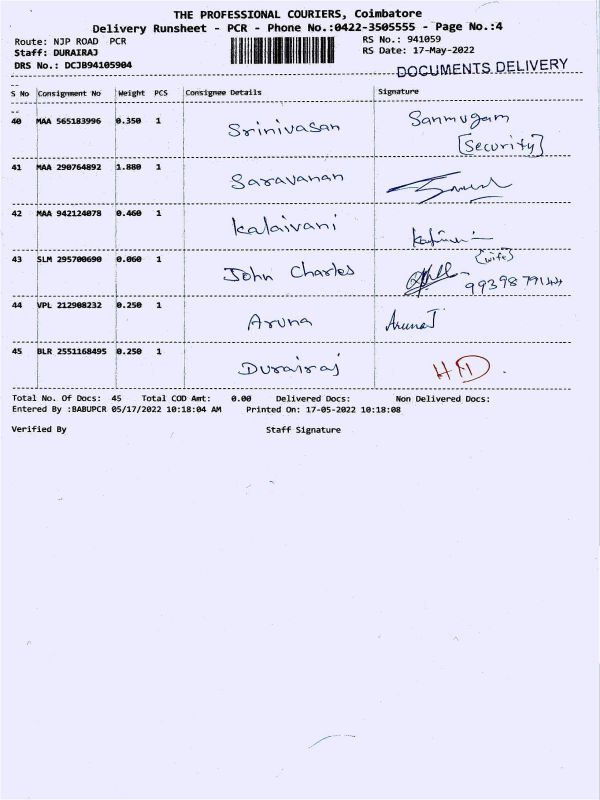 THE PROFESSIONAL COURIERS, Coimbatore
Delivery Runsheet - PCR - Phone No.:0422-3505555 - Page No.:4
Route: NJP ROAD PCR RS No.: 941059
Staff: DURAIRAJ RS Date: 17-May-2022
DRS No.: DCJB94105904
DOCUMENTS DELIVERY
S No Consignment No Weight PCS Consignee Details Signature
40 MAA 565183996 0.350 1 Srinivasan Sanmugam
[Security]
41 MAA 290764892 1.880 1 Saravanan
42 MAA 942124078 0.460 1 Kalaivani
43 SLM 295700690 0.060 1 John Charles (wife)
44 VPL 212908232 0.250 1 Aruna ArunaJ
45 BLR 2551168495 0.250 1 Durairaj HD.
Total No. Of Docs: 45 Total COD Amt: 0.00 Delivered Docs: Non Delivered Docs:
Entered By :BABUPCR 05/17/2022 10:18:04 AM Printed On: 17-05-2022 10:18:08
Verified By Staff Signature